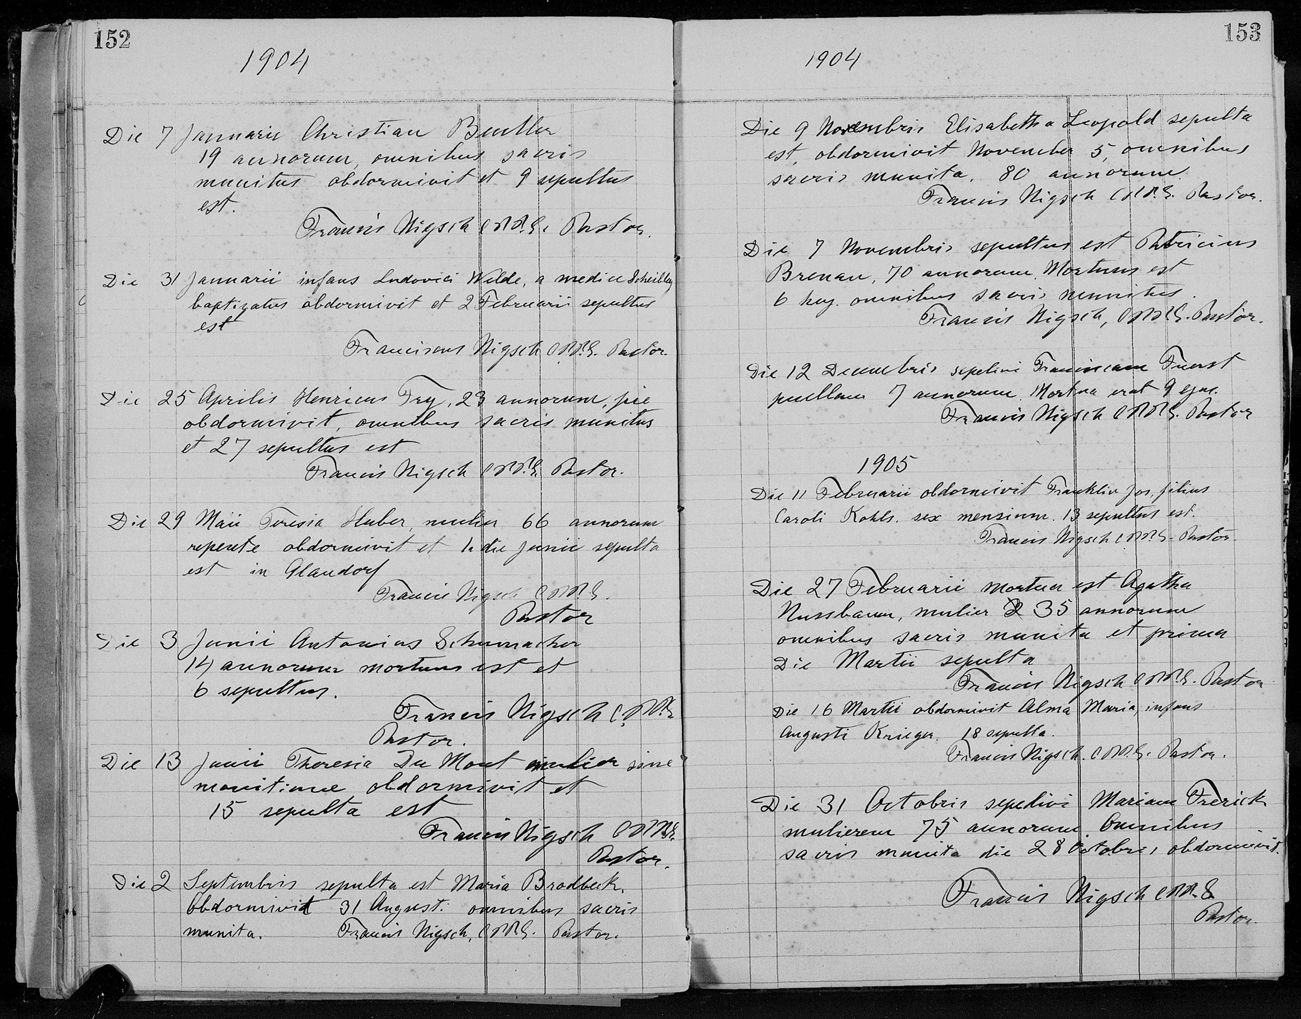 152
1904
Die 7 Januarii Christian Beutler
19 annorum, omnibus sacris
munitus obdormivit et 9 sepultus
est.
Francis Nigsch C.PP.S. Pastor.
Die 31 Januarii infans Ludovici Wilde, a medico
baptizatus obdormivit et 2 Februarii sepultus
est
Franciscus Nigsch C.PP.S. Pastor.
Die 25 Aprilis Henricus Fry, 23 annorum, pie
obdormivit, omnibus sacris munitus
et 27 sepultus est
Francis Nigsch C.PP.S. Pastor.
Die 29 Maii Teresia Huber, mulier 66 annorum
repente obdormivit et 1 die Junii sepulta
est in Glandorf
Francis Nigsch C.PP.S.
Pastor
Die 3 Junii Antonius Schumacher
14 annorum mortuus est et
6 sepultus.
Francis Nigsch C.PP.S
Pastor.
Die 13 Junii Theresia Du Mont mulier sine
monitione obdormivit et
15 sepulta est
Francis Nigsch C.PP.S.
Pastor.
Die 2 Septembris sepulta est Maria Brodbeck.
Obdormivit 31 August. omnibus sacris
munita. Francis Nigsch, C.PP.S. Pastor.
153
1904
Die 9 Novembris Elisabetha Leopold sepulta
est, obdormivit November 5, omnibus
sacris munita. 80 annorum
Francis Nigsch C.PP.S. Pastor.
Die 7 Novembris sepultus est Patricius
Brenan, 70 annorum, Mortuus est
6 huj. omnibus sacris munitus.
Francis Nigsch, C.PP.S. Pastor.
Die 12 Decembris sepelivi Fuerst
puellam 7 annorum, Mortua erat 9 ejus.
Francis Nigsch C.PP.S. Pastor
1905
Die 11 Februarii obdormivit Franklin Jos. filius
Caroli Kohls. sex mensium. 13 sepultus est.
Francis Nigsch C.PP.S. Pastor.
Die 27 Februarii mortua est Agatha
Nussbaum, mulier 35 annorum
omnibus sacris munita et prima
Die Martii sepulta
Francis Nigsch C.PP.S. Pastor
Die 16 Martii obdormivit Alma Maria, infans
Augusti Krieger. 18 sepulta.
Francis Nigsch. C.PP.S. Pastor.
Die 31 Octobris sepelivi Mariam Frerick
mulierem 75 annorum. Omnibus
sacris munita die 28 Octobris obdormivit.
Francis Nigsch C.PP.S
Pastor